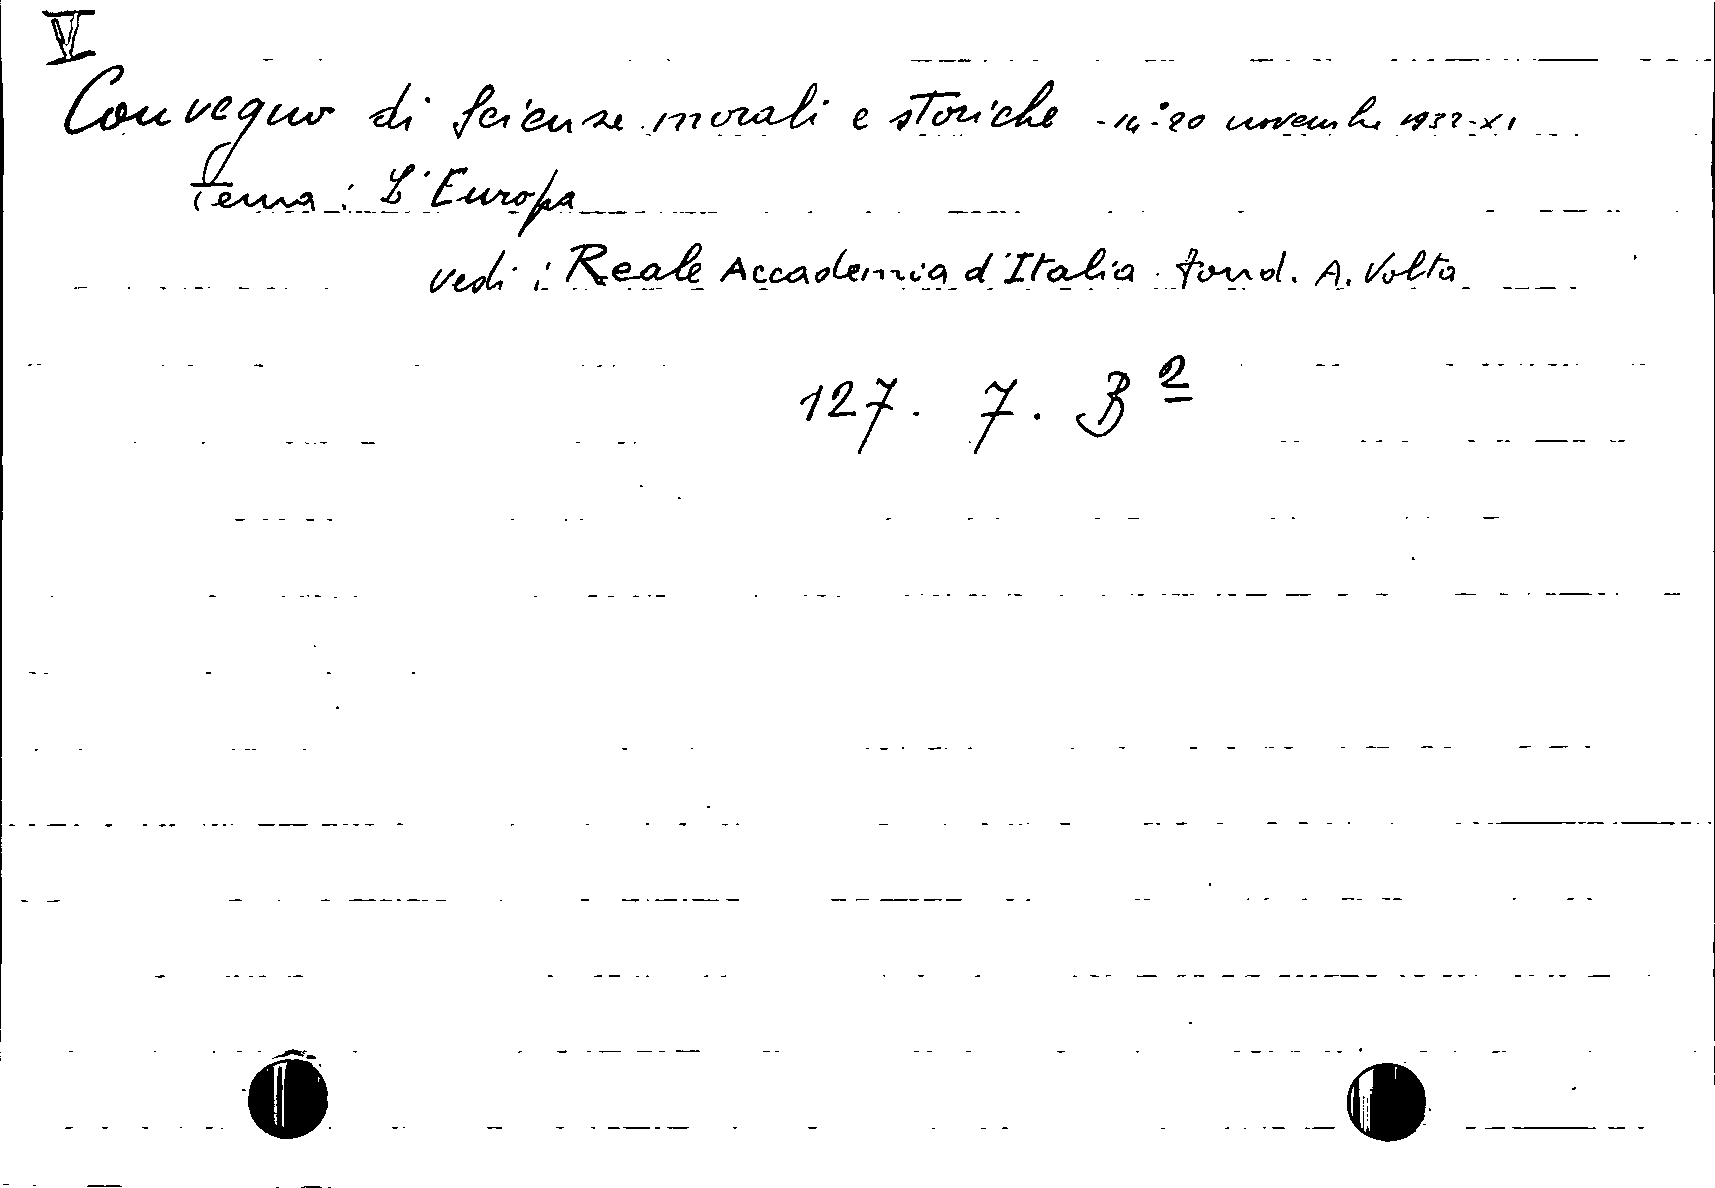 V
Convegno di Scienze morali e storiche - 14-20 novembre 1932-XI
Tema: L'Europa
vedi: Reale Accademia d'Italia. fond. A. Volta
127. 7. B 2